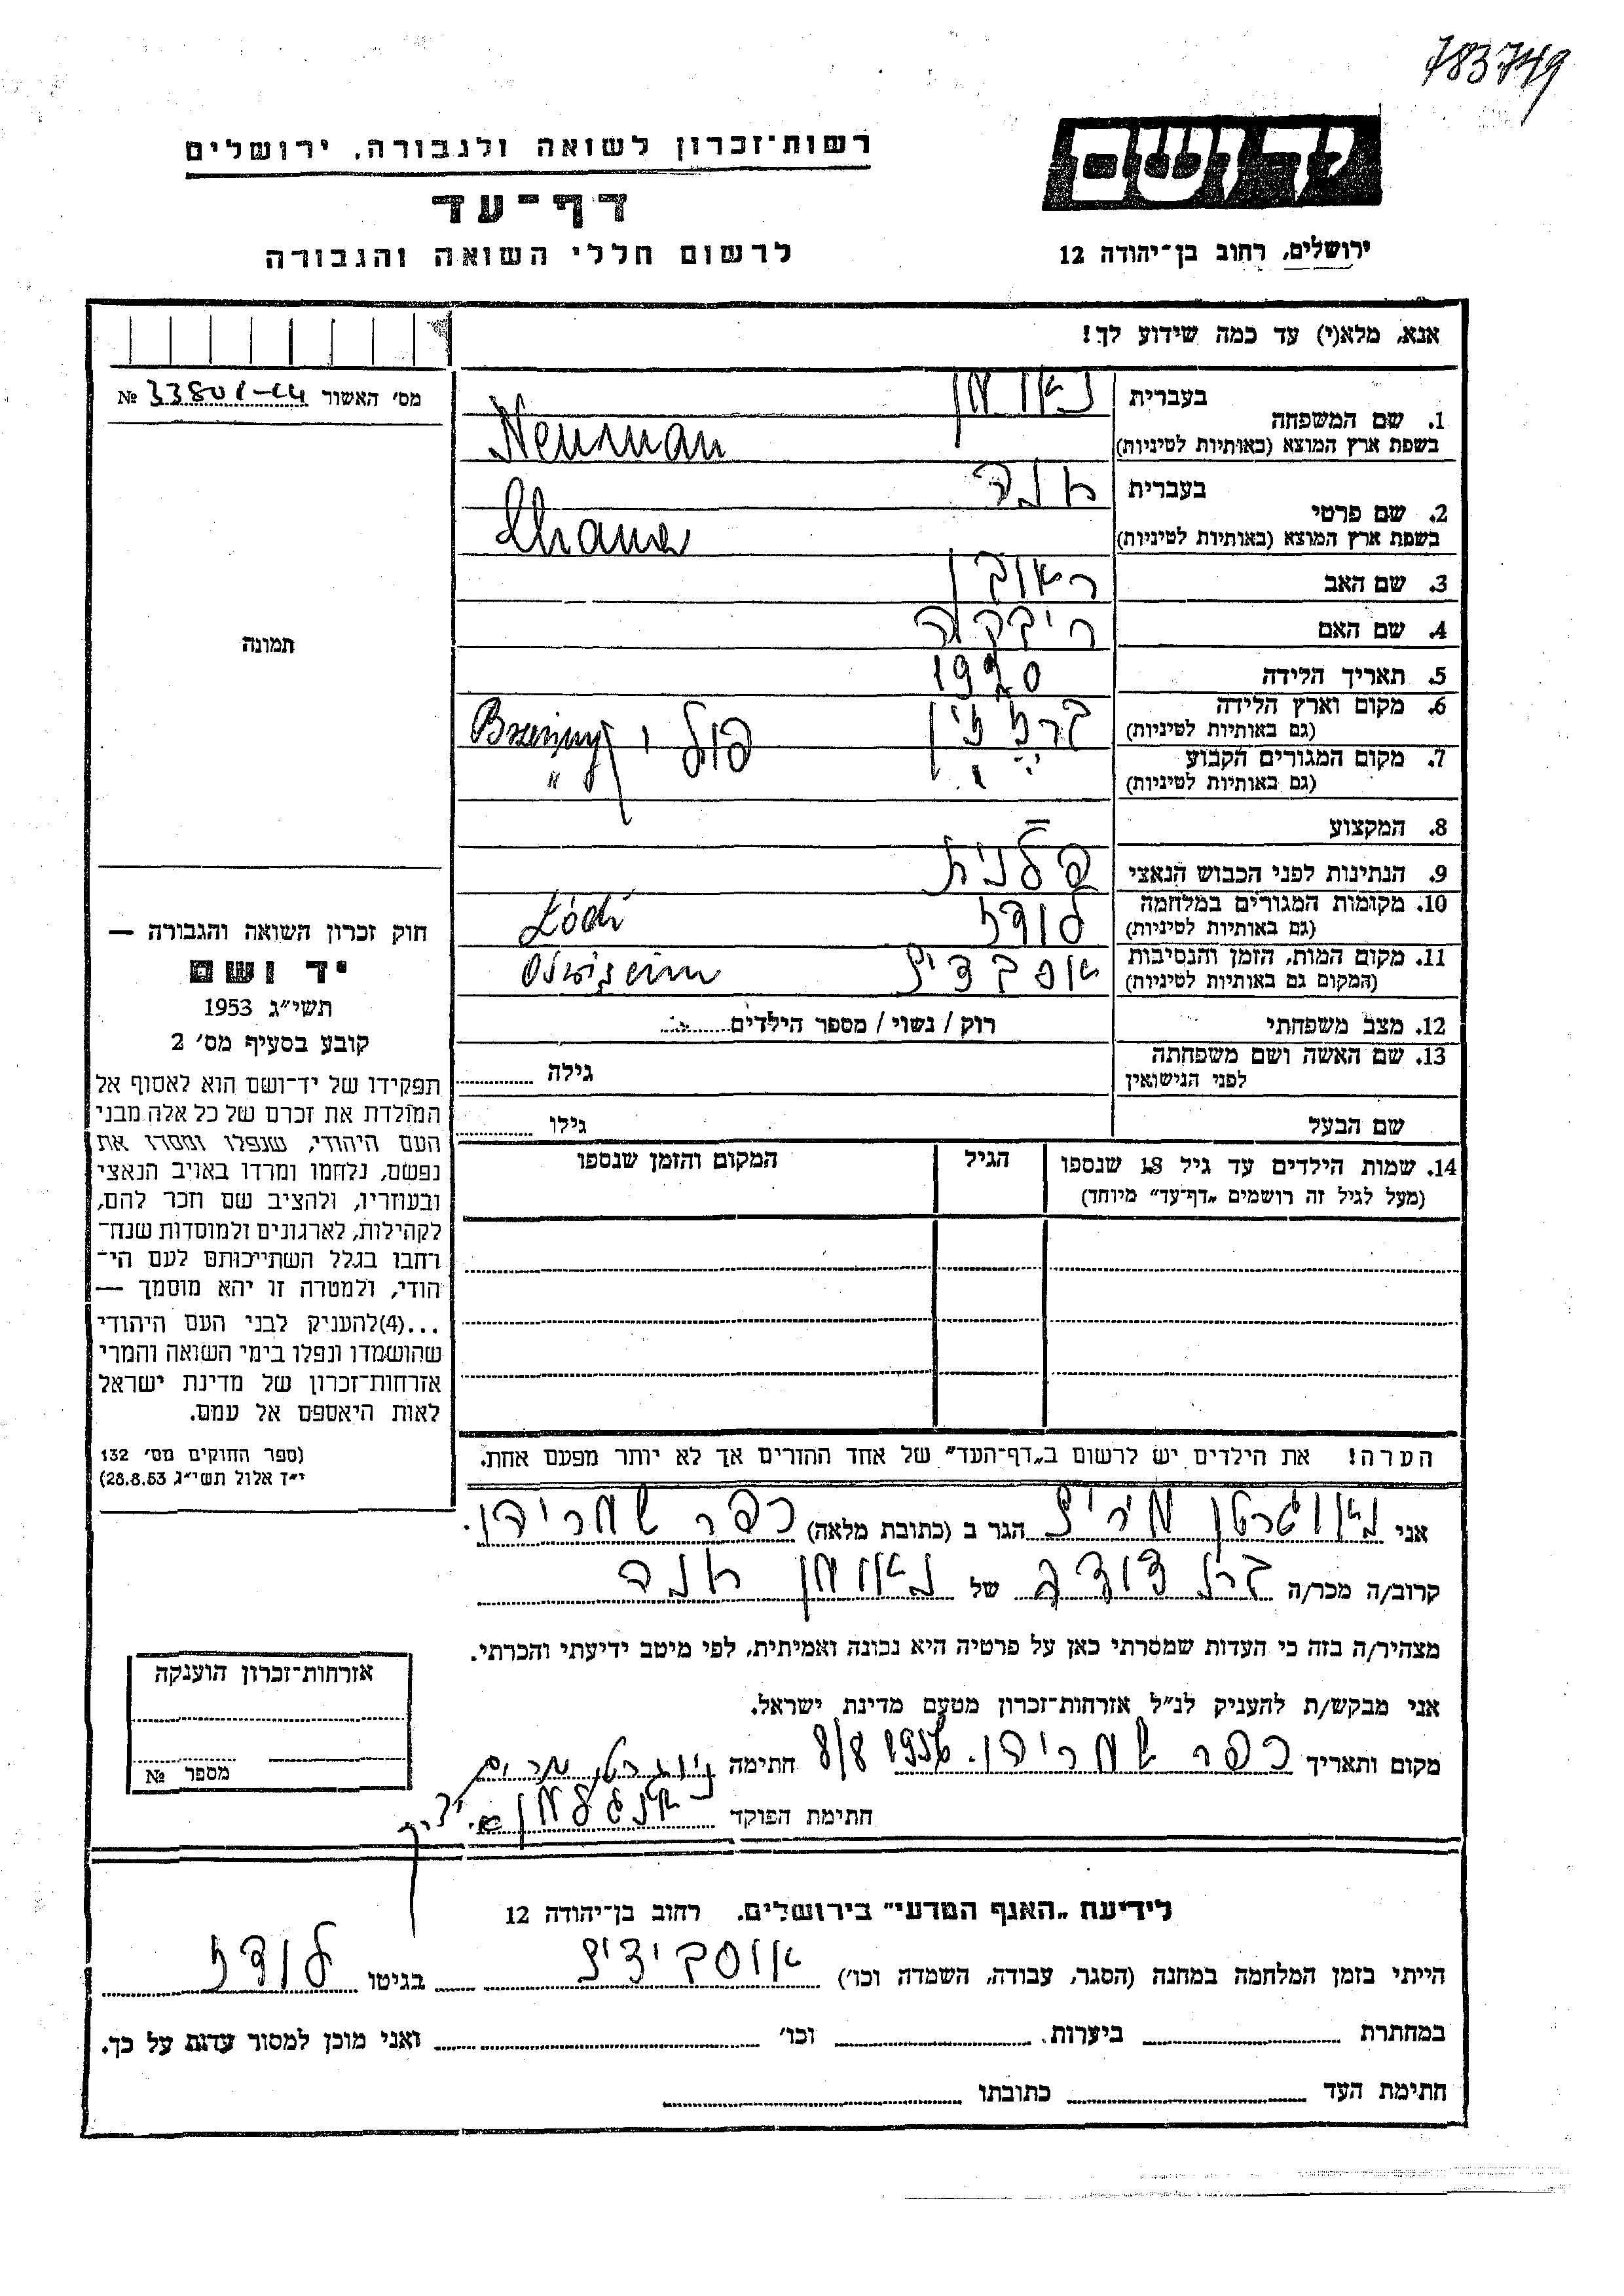 783749
יד ושם
רשות־זכרון לשואה ולגבורה, ירושלים
דף־עד
לרשום חללי השואה והגבורה
ירושלים, רחוב בן־יהודה 12
אנא, מלא(י) עד כמה שידוע לך!
מס׳ האשור 33801-44 №
תמונה
1. שם המשפחה
בעברית נאומן
בשפת ארץ המוצא (באותיות לטיניות) Neuman
2. שם פרטי
בעברית חנה
בשפת ארץ המוצא (באותיות לטיניות) Chana
3. שם האב ראובן
4. שם האם ריבקה
5. תאריך הלידה 1920
6. מקום וארץ הלידה
(גם באותיות לטיניות) ברזזין פולין Brzeziny
7. מקום המגורים הקבוע
(גם באותיות לטיניות) " "
8. המקצוע –
9. הנתינות לפני הכבוש הנאצי פלנית
10. מקומות המגורים במלחמה
(גם באותיות לטיניות) לודז Łódź
11. מקום המות, הזמן והנסיבות
(המקום גם באותיות לטיניות) Oświęcim
12. מצב משפחתי רוק / נשוי / מספר הילדים
13. שם האשה ושם משפחתה
לפני הנישואין גילה
שם הבעל גילו
14. שמות הילדים עד גיל 18 שנספו
(מעל לגיל זה רושמים „דף־עד” מיוחד)
הגיל
המקום והזמן שנספו
הערה! את הילדים יש לרשום ב„דף־העד” של אחד ההורים אך לא יותר מפעם אחת.
חוק זכרון השואה והגבורה —
יד ושם
תשי״ג 1953
קובע בסעיף מס׳ 2
תפקידו של יד־ושם הוא לאסוף אל
המולדת את זכרם של כל אלה מבני
העם היהודי, שנפלו ומסרו את
נפשם, נלחמו ומרדו באויב הנאצי
ובעוזריו, ולהציב שם וזכר להם,
לקהילות, לארגונים ולמוסדות שנח־
רחבו בגלל השתייכותם לעם הי־
הודי, ולמטרה זו יהא מוסמך —
...(4)להעניק לבני העם היהודי
שהושמדו ונפלו בימי השואה והמרי
אזרחות־זכרון של מדינת ישראל
לאות היאספם אל עמם.
(ספר החוקים מס׳ 132
י״ד אלול תשי״ג 28.8.53)
אני הגר ב (כתובת מלאה) כפר שמריהו.
קרוב/ה מכר/ה בת דודה של נאומן חנה
מצהיר/ה בזה כי העדות שמסרתי כאן על פרטיה היא נכונה ואמיתית, לפי מיטב ידיעתי והכרתי.
אני מבקש/ת להעניק לנ״ל אזרחות־זכרון מטעם מדינת ישראל.
מקום ותאריך כפר שמריהו. 8/8 1956 חתימה
חתימת הפוקד
אזרחות־זכרון הוענקה
מספר №
לידיעת „האגף המדעי” בירושלים. רחוב בן־יהודה 12
הייתי בזמן המלחמה במחנה (הסגר, עבודה, השמדה וכו׳) אוסבידיץ בגיטו לודז
במחתרת ביערות. וכו׳ ואני מוכן למסור עדות על כך.
חתימת העד כתובתו